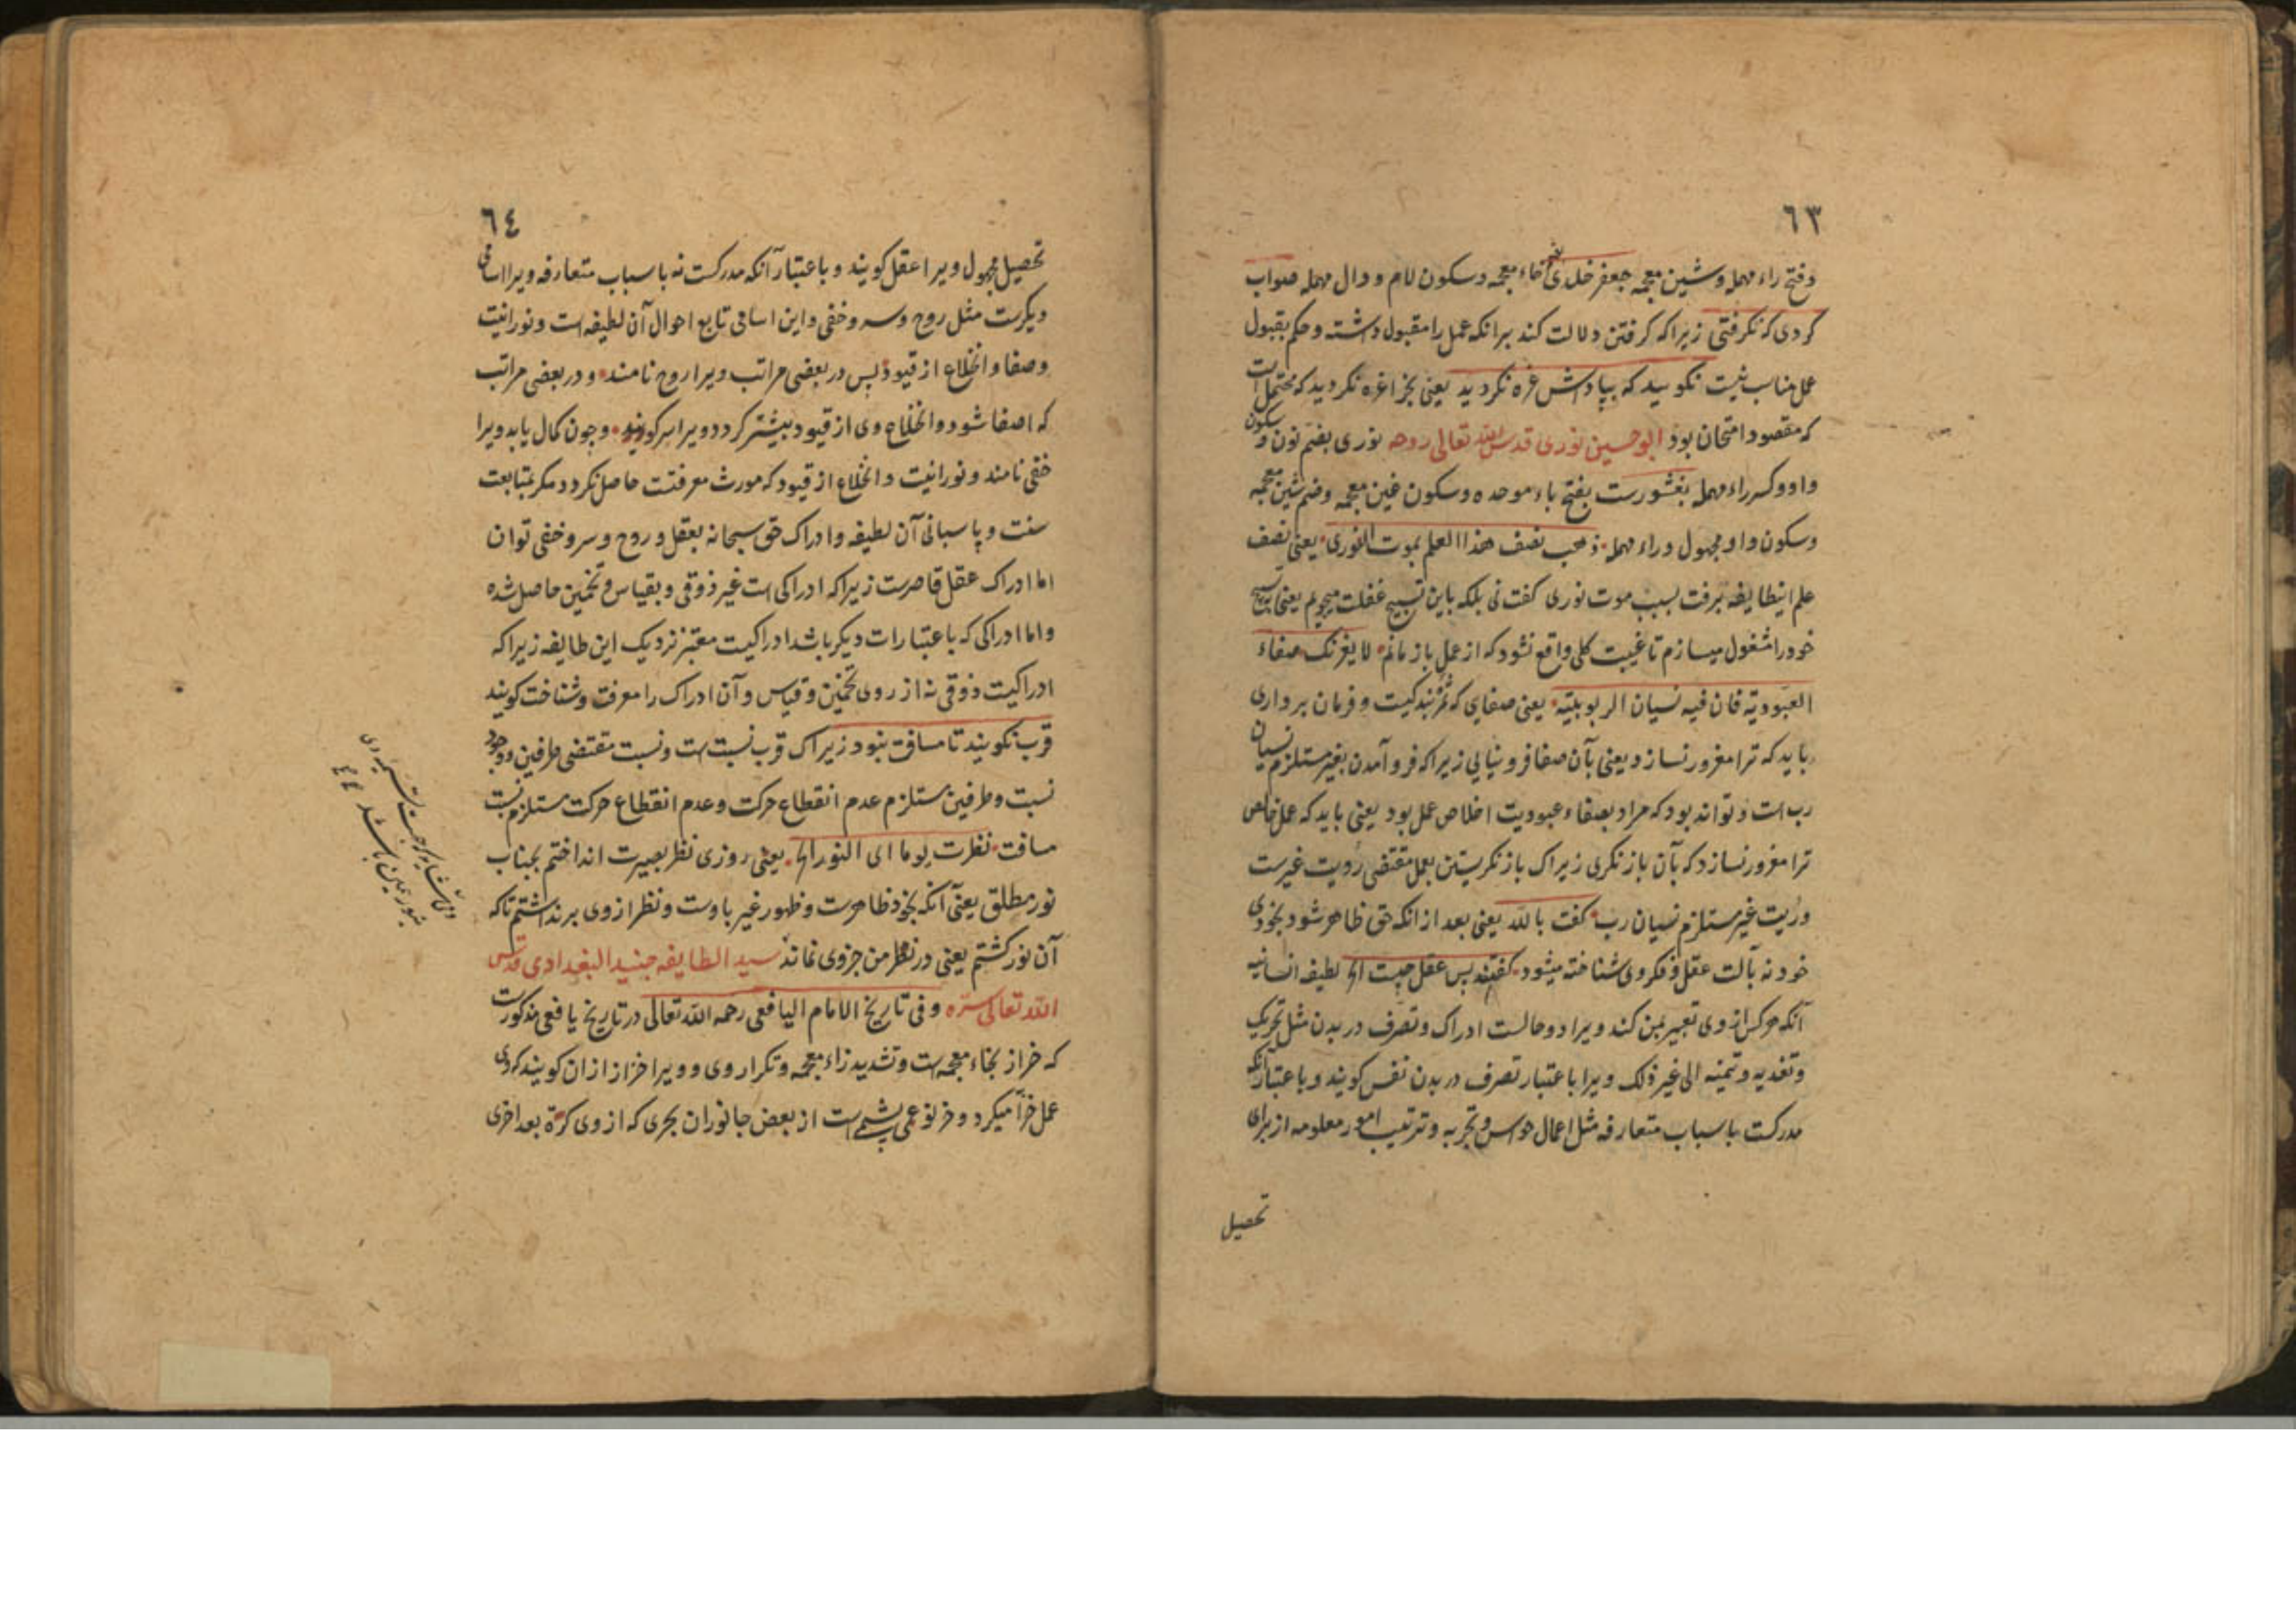 ٦٣
وفتح راء مهمله وشین معجمه جعفر خلدی بضم خاء معجمه وسکون لام و دال مهمله صواب
کردی که نکرفتی زیراکه کرفتن دلالت کند برانکه عمل را مقبول داشته وحکم بقبول
عمل مناسب نیست نکویید که بپاداش غره نکردید یعنی بجزا غره نکردید که محتمل است
که مقصود امتحان بود ابوحسین نوری قدس الله تعالی روحه نوری بضم نون و سکون
واو وکسر راء مهمله بغشورست بفتح باء موحده وسکون غین معجمه وضم شین معجمه
وسکون واو مجهول وراء مهمله ذهب نصف هذا العلم بموت النوری یعنی نصف
علم اینطایفه برفت بسبب موت نوری کفت نی بلکه باین تسبیح غفلت میجویم یعنی بتسبیح
خود را مشغول میسازم تا غیبت کلی واقع نشود که از عمل باز مانم لا یغرنک صفاء
العبودیة فان فیه نسیان الربوبیته یعنی صفایی که ثمره بندکیت و فرمان برداری
باید که ترا مغرور نسازد یعنی بآن صفا فرو نیایی زیراکه فرو آمدن بغیر مستلزم نسیان
رب است و تواند بود که مراد بصفاء عبودیت اخلاص عمل بود یعنی باید که عمل خالص
ترا مغرور نسازد که بآن باز نکری زیراک باز نکریستن بعمل مقتضی رؤیت غیرست
ورؤیت غیر مستلزم نسیان رب کفت بالله یعنی بعد ازانکه حق ظاهر شود بخودی
خود نه بآلت عقل و فکر وی شناخته میشود کفتند پس عقل چیست الخ لطیفه انسانیه
آنکه هرکس از وی تعبیر بمن کند ویرا دو حالست ادراک وتصرف در بدن مثل تحریک
وتغدیه وتنمیه الی غیر ذلک ویرا باعتبار تصرف در بدن نفس کویند وباعتبار آنکه
مدرکست باسباب متعارفه مثل اعمال حواس وتجربه وترتیب امور معلومه از برای
تحصیل
٦٤
تحصیل مجهول ویرا عقل کویند وباعتبار آنکه مدرکست نه باسباب متعارفه ویرا اسامی
دیکرست مثل روح وسر وخفی واین اسامی تابع احوال آن لطیفه است ونورانیت
وصفا وانخلاع از قیود پس در بعضی مراتب ویرا روح نامند ودر بعضی مراتب
که اصفا شود وانخلاع وی از قیود بیشتر کردد ویرا سر کویند وچون کمال یابد ویرا
خفی نامند ونورانیت وانخلاع از قیود که مورث معرفتت حاصل نکردد مکر بمتابعت
سنت وپاسبانی آن لطیفه وادراک حق سبحانه بعقل وروح وسر وخفی توان
اما ادراک عقل قاصرست زیراکه ادراکی است غیر ذوقی وبقیاس وتخمین حاصل شده
واما ادراکی که باعتبارات دیکر باشد ادراکیت معتبر نزدیک این طایفه زیراکه
ادراکیت ذوقی نه از روی تخمین وقیاس وآن ادراک را معرفت وشناخت کویند
قرب نکویند تا مسافت نبود زیراک قرب نسبتست ونسبت مقتضی طرفین ووجود
نسبت وطرفین مستلزم عدم انقطاع حرکت وعدم انقطاع حرکت مستلزم نسبت
مسافت نظرت یوما الی النور الخ یعنی روزی نظر بصیرت انداختم بجناب
نور مطلق یعنی آنکه بخود ظاهرست وظهور غیر باوست ونظر از وی برنداشتم تاکه
آن نور کشتم یعنی در نظر من جزوی نماند سید الطایفه جنید البغدادی قدس
الله تعالی سره وفی تاریخ الامام الیافعی رحمه الله تعالی در تاریخ یافعی مذکورست
که خراز بخاء معجمه است وتشدید زاء معجمه وتکرار وی وویرا خزاز ازان کویند که وی
عمل خزا میکرد وخز نوعی پشم است از بعض جانوران بحری که از وی کرّة بعد اخری